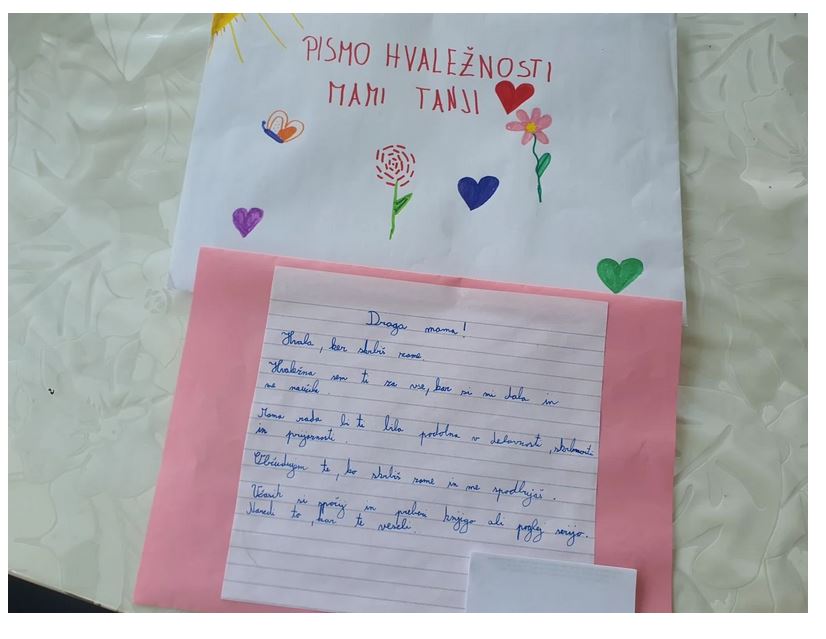 PISMO HVALEŽNOSTI
MAMI TANJI
Draga mama!
Hvala, ker skrbiš zame.
Hvaležna sem ti za vse, kar si mi dala in
me naučila.
Mama rada bi ti bila podobna v delavnosti, skrbnosti
in prijaznosti.
Občudujem te, ko skrbiš zame in me spodbujaš.
Včasih si spočij in preberi knjigo ali poglej serijo.
Naredi to, kar te veseli.